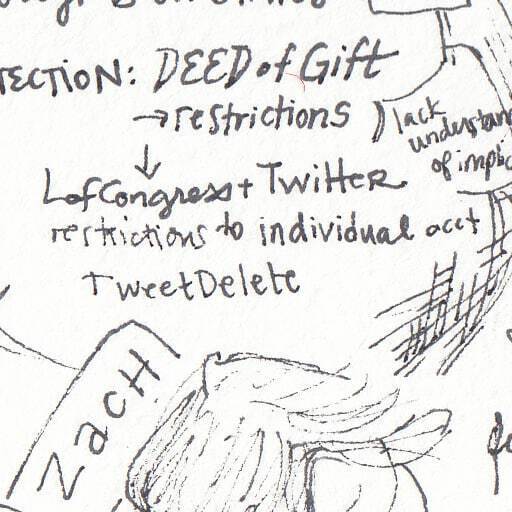 TECTION: DEED of Gift
→ restrictions
lack
of
↓
L of Congress + Twitter
restrictions to individual acct
TweetDelete
Zach